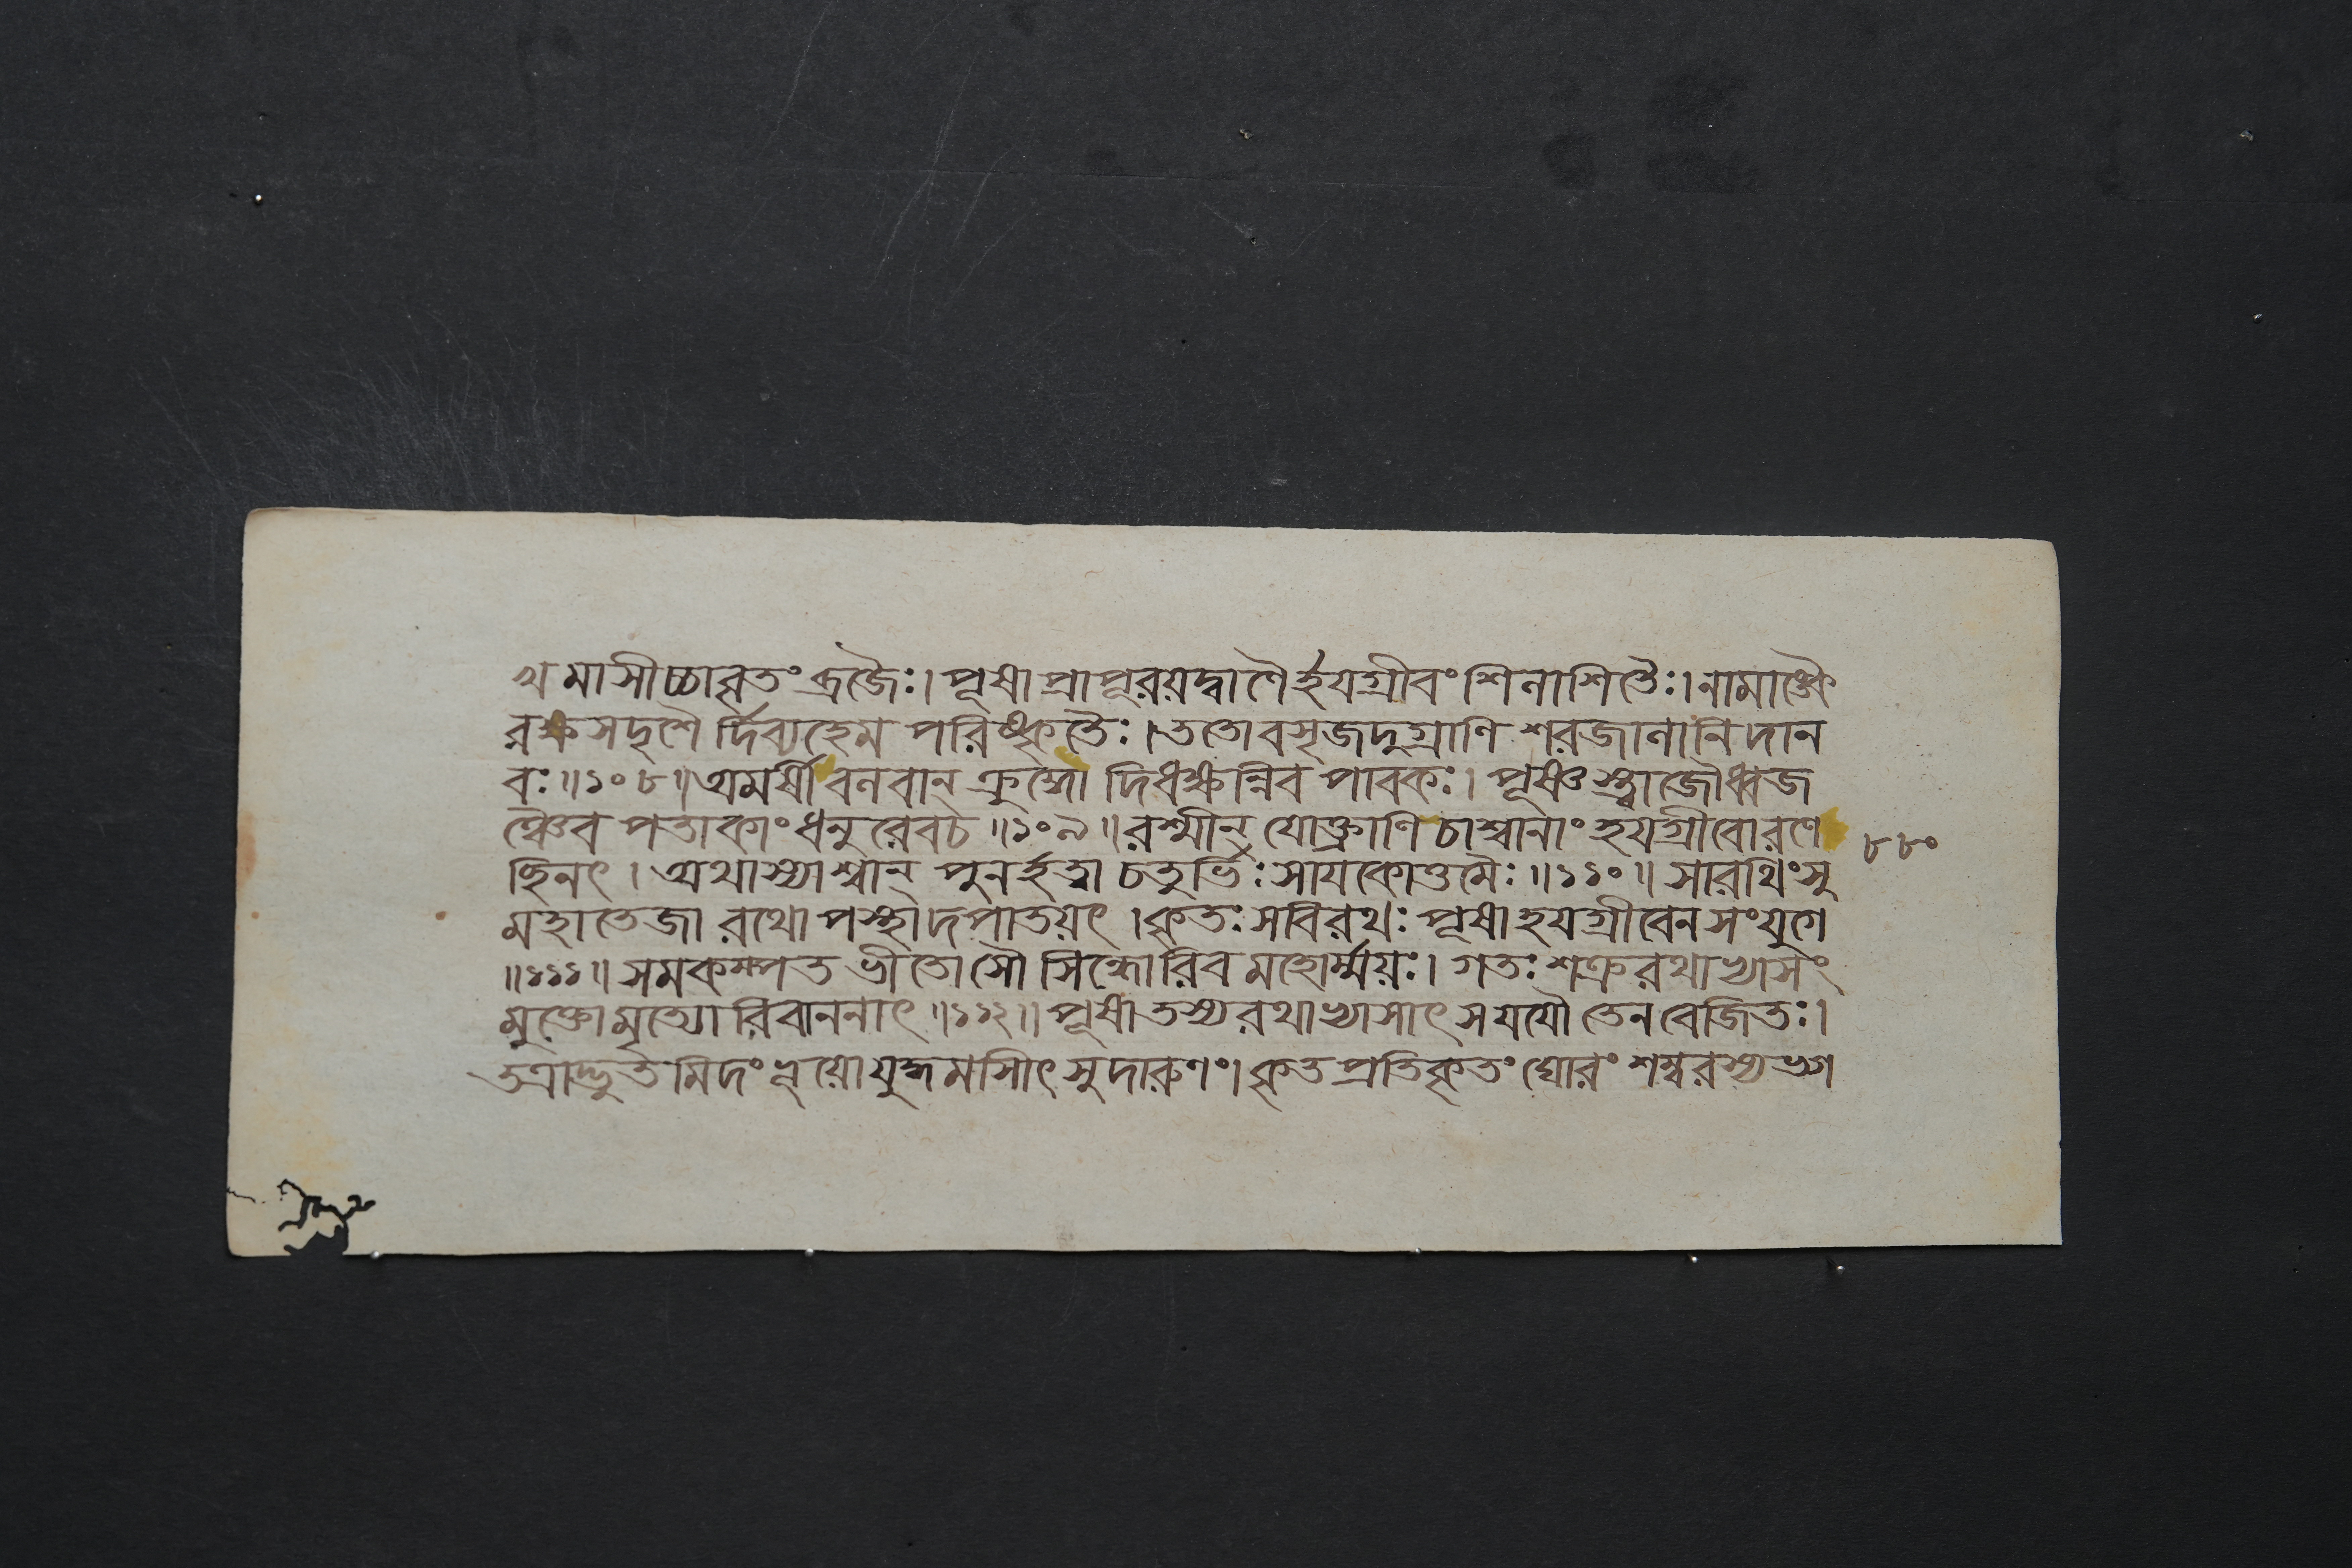 খমাসীচ্চাবৃতং দ্রুজৈঃ। পূষা প্রাপূরয়দ্বাণৈর্হয়গ্রীবং শিনাশিতৈঃ। নামাঙ্কৈ
রর্ক্কসদৃশৈ র্দিব্যহেম পরিষ্কৃতৈঃ। ততোবসৃজদুগ্রাণি শরজানানিদান
বঃ॥১০৮॥অমর্ষী বনবান্ ক্রুদ্ধো দিধক্ষন্নিব পাবকঃ। পূষ্ণস্ত্বাজৌধ্বজ
ঞ্চৈব পতাকাং ধনু রেবচ॥১০৯॥রশ্মীন্ যোক্ত্রাণি চাশ্বানাং হয়গ্রীবোরণে ৮৮০
ছিনৎ। অথাস্যাশ্বান্ পুনর্হত্বা চতুর্ভিঃ সায়কোত্তমৈঃ॥১১০॥ সারথিংসু
মহাতেজা রথোপস্থাদপাতয়ৎ। কৃতঃ সবিরথঃ পূষা হয়গ্রীবেনসংযুগে
॥১১১॥ সমকম্পত ভীতোসৌ সিন্ধোরিব মহোর্ম্ময়ঃ। গতঃ শত্রুরথাখ্যাসং
মুক্তোমৃত্যো রিবাননাৎ॥১১২॥ পূষাতস্যরথাখ্যাসাৎ সযযৌ তেনবেজিতঃ।
তত্রাদ্ভুত মিদং দ্বয়োযুদ্ধমাসীৎ সুদারুণং। কৃতপ্রতিকৃতং ঘোরং শম্বরস্যভগ